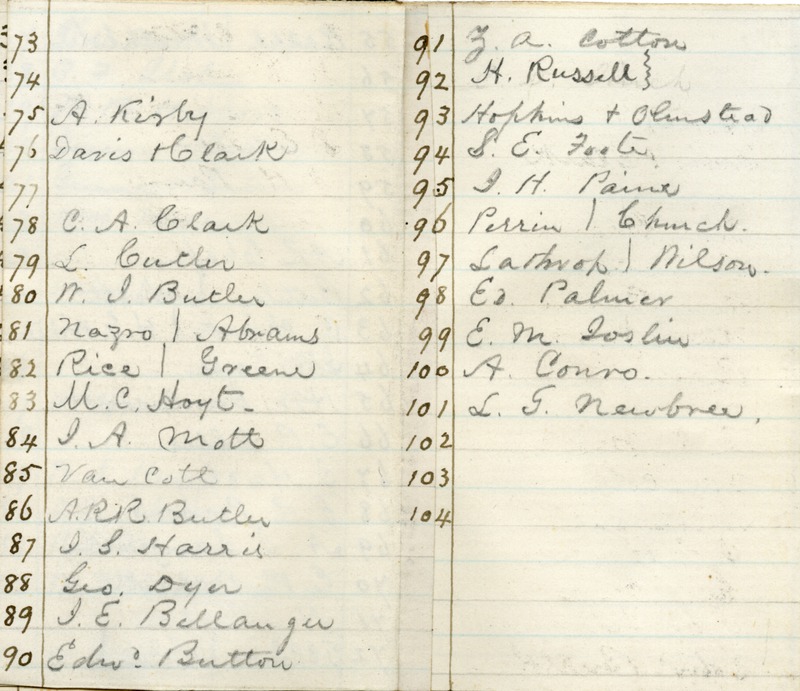 73
74
75 A. Kirby
76 Davis & Clark
77
78 C. A. Clark
79 L. Cutler
80 W. I. Butler
81 Nazro | Abrams
82 Rice | Greene
83 M. C. Hoyt.
84 I. A. Mott
85 Van Cott
86 A.R.R. Butler
87 I. S. Harris
88 Geo. Dyer
89 I. E. Bellanger
90 Edwd. Button
91 Z. A. Cotton
92 H. Russell }
93 Hopkins & Olmstead
94 S. E. Foote.
95 I. H. Paine
96 Perrin | Church.
97 Lathrop | Wilson.
98 Ed. Palmer
99 E. M. Joslin
100 A. Conro.
101 L. G. Newbree.
102
103
104